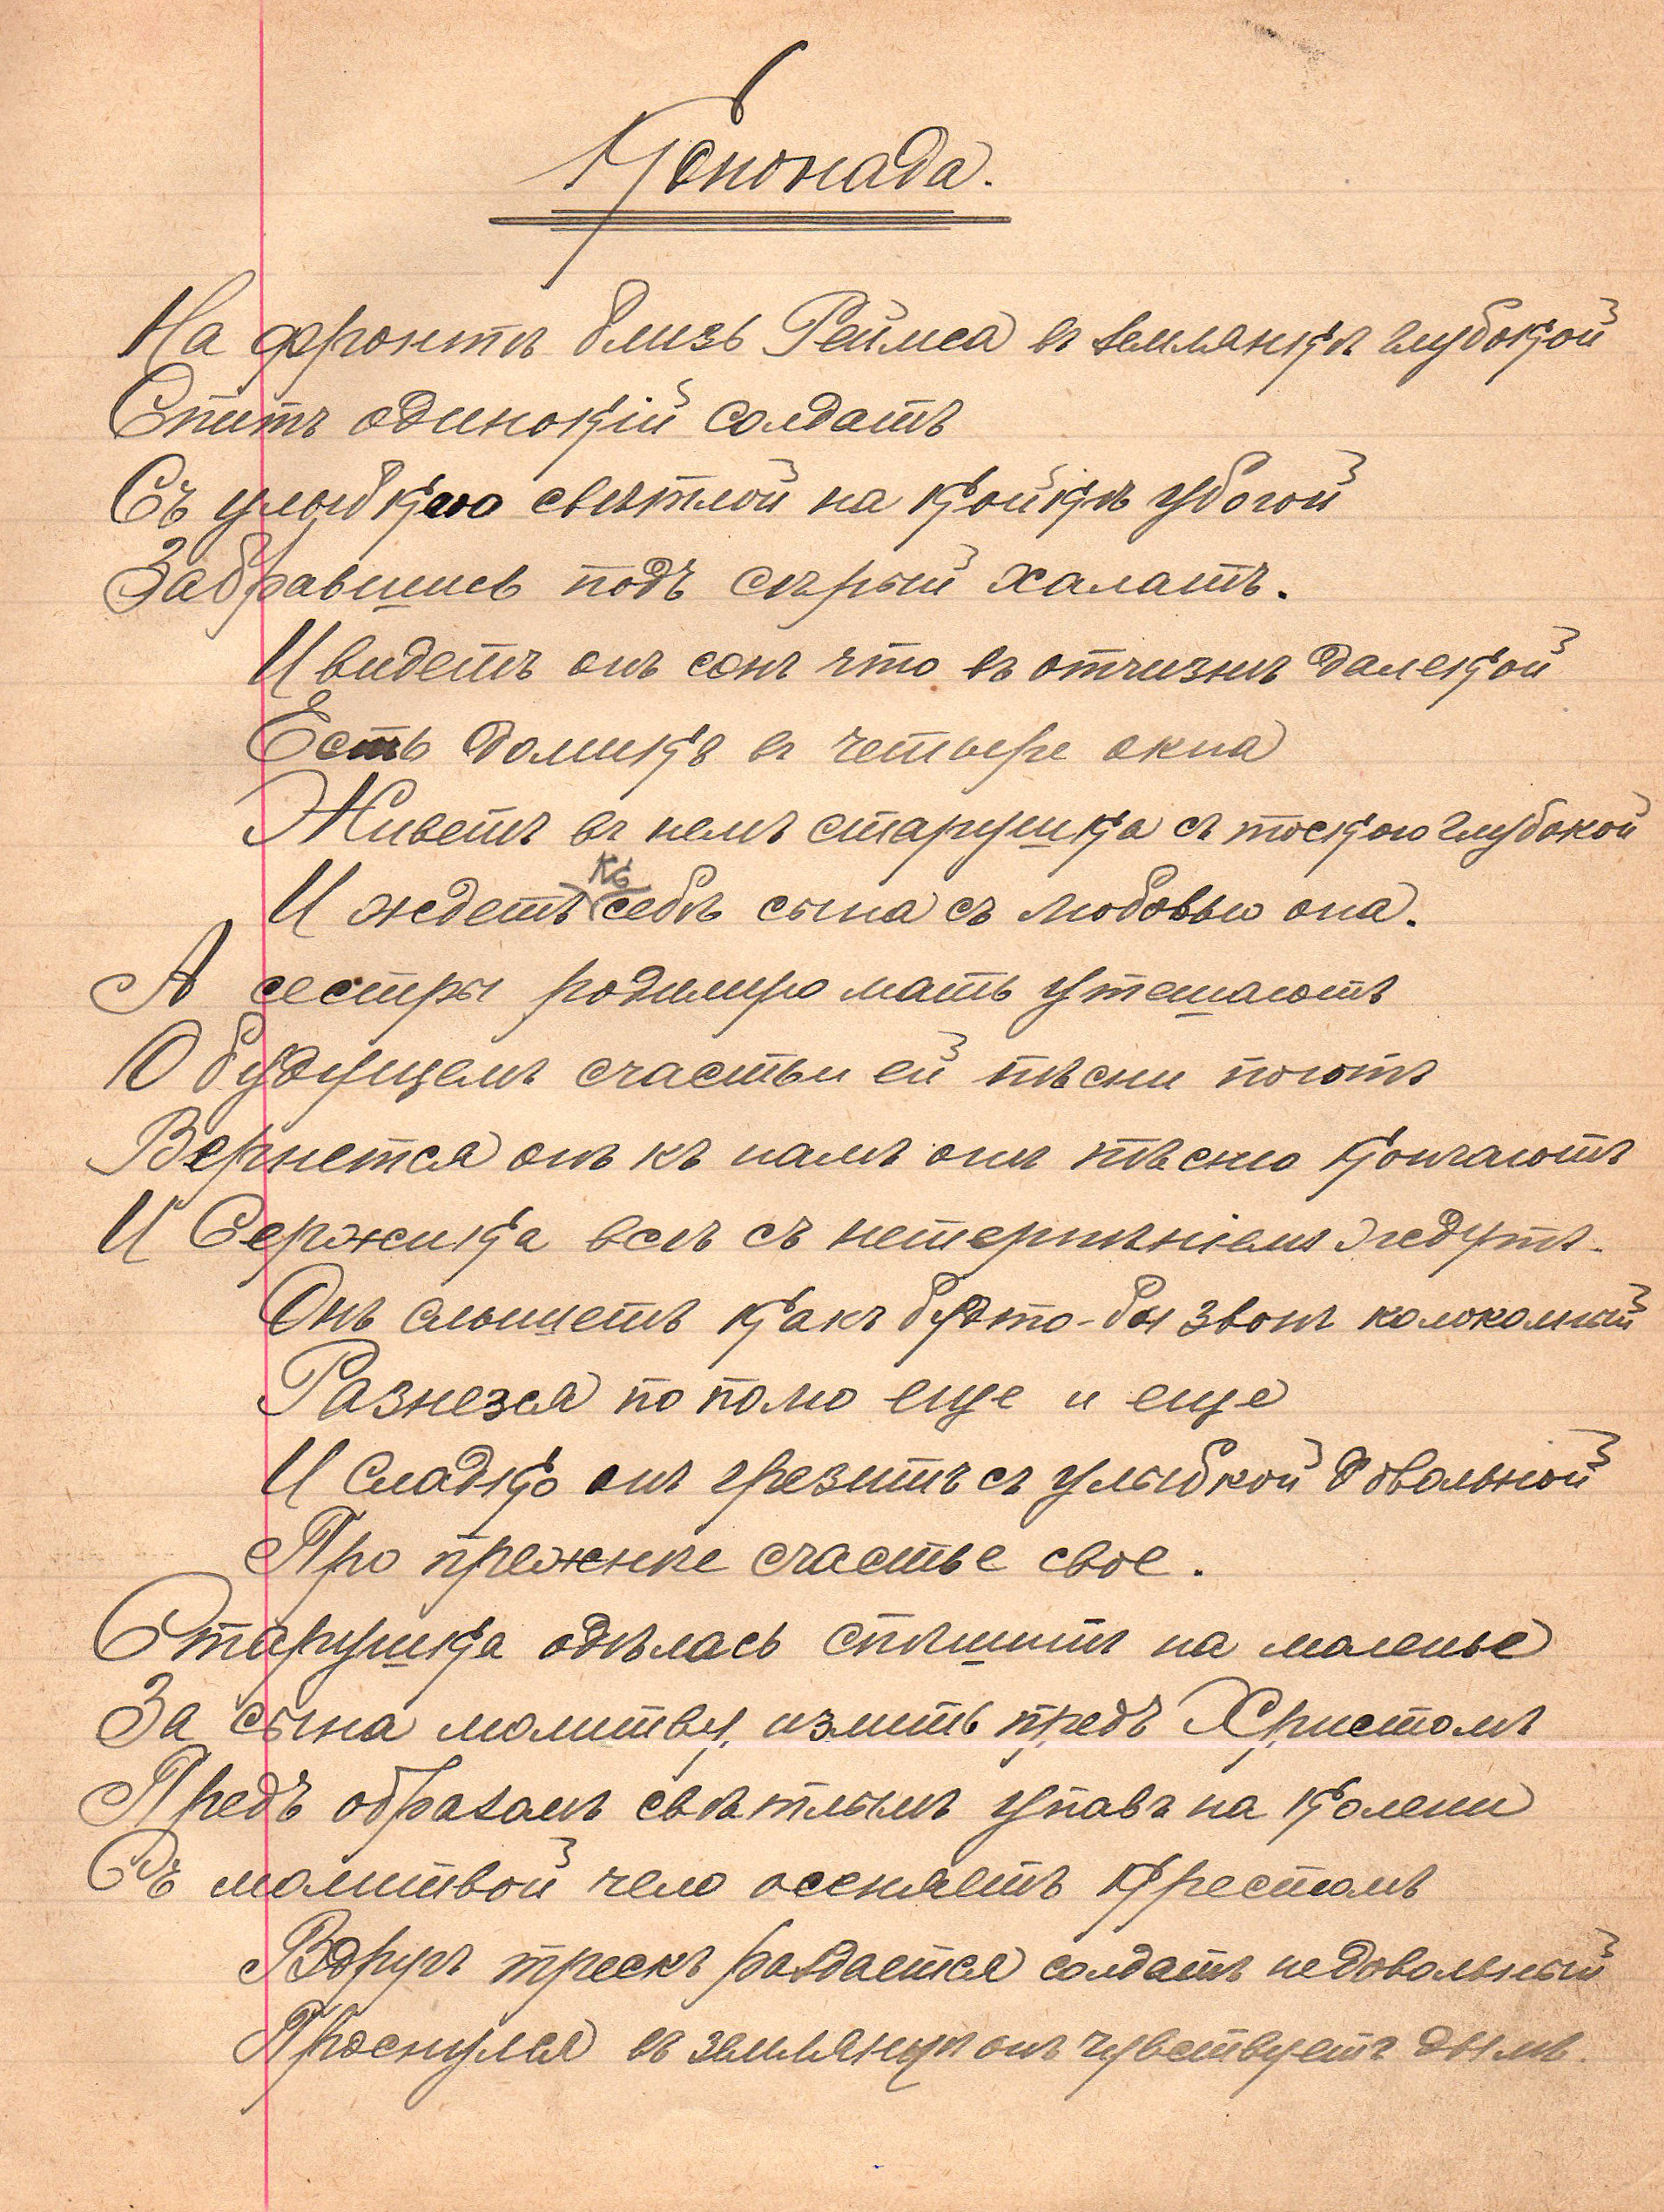 Кононада.
На фронтѣ близь Реймса въ землянкѣ глубокой
Спитъ одинокій солдатъ
Съ улыбкою свѣтлой на койкѣ убогой
Забравшись подъ сѣрый халатъ.
И видетъ онъ сонъ что въ отчизнѣ далекой
Есть домикъ въ четыре окна
Живетъ въ немъ старушка съ тоскою глубокой
И ждетъ къ себѣ сына съ любовью она.
А сестры родимую мать утешаютъ
О будущемъ счастьи ей пѣсни поютъ
Вернется онъ къ намъ онѣ пѣсню кончаютъ
И Сержика всѣ съ нетерпѣніемъ ждутъ.
Онъ слышетъ какъ будто-бы звонъ колокольный
Разнезся по полю еще и еще
И сладко онъ грезитъ съ улыбкой довольной
Про прежнее счастье свое.
Старушка одѣлась спѣшитъ на моленье
За сына молитву излить предъ Христомъ
Предъ образомъ свѣтлымъ упавъ на колени
Съ молитвой чело осеняетъ крестомъ
Вдругъ трескъ раздается солдатъ недовольный
Проснулся въ землянкѣ онъ чувствуетъ дымъ.